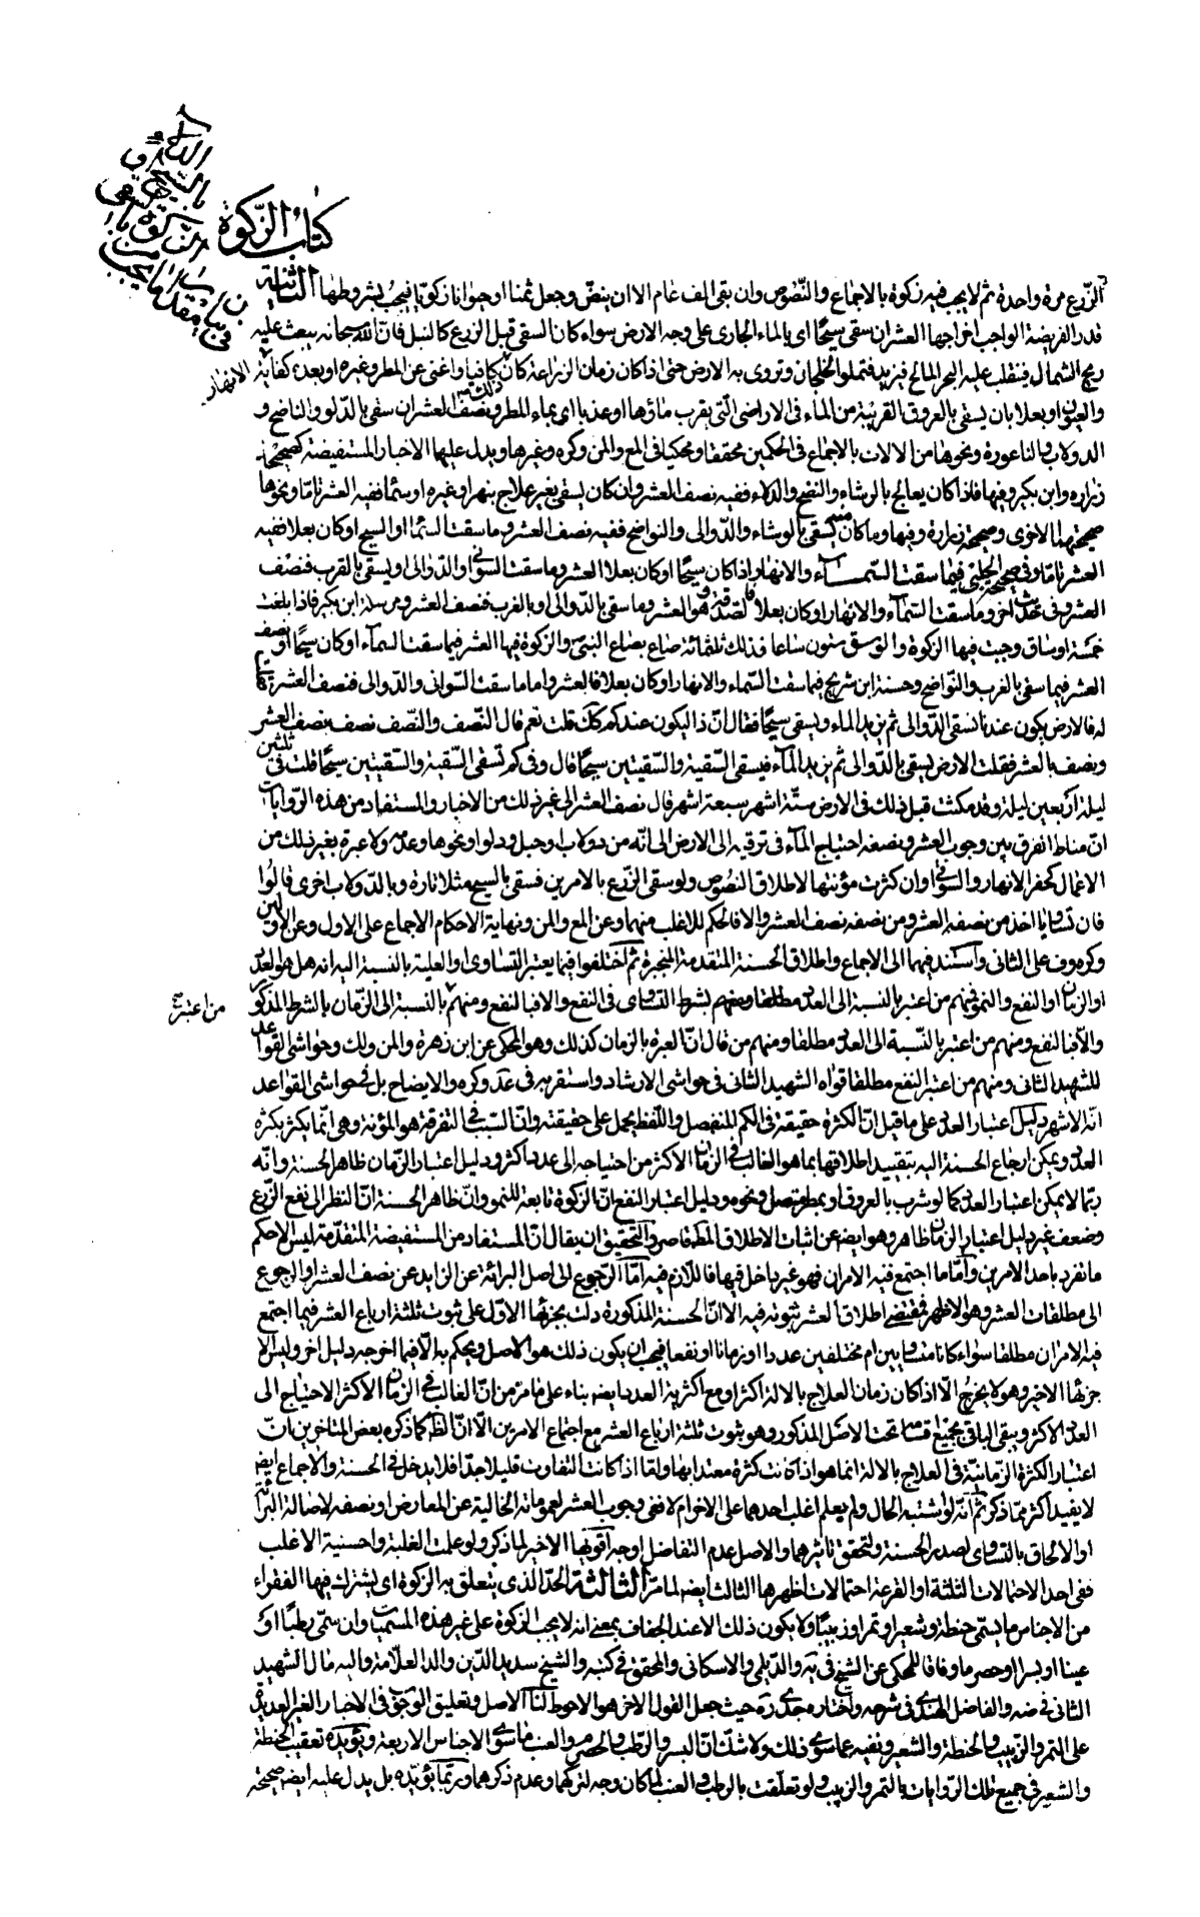 كتاب الزكوة
الزرع مرة واحدة ثم لا يجب فيه زكوة بالاجماع والنصوص وان بقى الف عام الا ان ينض وجعل ثمنا او حيوانا زكويا فيجب بشروطها الثانية
قدر الفريضة الواجب اخراجها العشر ان سقى سيحا اى بالماء الجارى على وجه الارض سواء كان السقى قبل الزرع كالنيل فان الله سبحانه يبعث عليه
ريح الشمال فينقلب عليه البحر المالح فيزيد فتملو الخلجان وتروى به الارض حتى اذا كان زمان الزراعة كان كافيا واغنى عن المطر وغيره او بعده كفاية الانهار
والعيون او بعلا بان يسقى بالعروق القريبة من الماء فى الاراضى التى يقرب ماؤها او عذيا اى بماء المطر ونصف العشر ان سقى بالدلو والناضح و
الدولاب والناعورة ونحوها من الالات بالاجماع فى الحكمين محققا ومحكيا فى المع والمن وكره وغيرها ويدل عليهما الاخبار المستفيضة كصحيحة
زرارة وابن بكير وفيها فاذا كان يعالج بالرشاء والنضح والدلاء ففيه نصف العشر وان كان يسقى بغير علاج بنهر او غيره او سماء ففيه العشر تاما ونحوها
صحيحتهما الاخرى وصحيحة زرارة وفيها وما كان منه يسقى بالرشاء والدوالى والنواضح ففيه نصف العشر وما سقت السماء او السيح او كان بعلا ففيه
العشر تاما وفى صحيحة الحلبى فيما سقت السماء والانهار اذا كان سيحا او كان بعلا العشر وما سقت السوانى والدوالى او يسقى بالغرب فنصف
العشر وفى اخر وما سقت السماء والانهار او كان بعلا فالصدقة وهو العشر وما سقى بالدوالى او بالغرب فنصف العشر ومرسلة ابن بكير فاذا بلغت
خمسة اوساق وجبت فيها الزكوة والوسق ستون صاعا فذلك ثلثمائة صاع بصاع النبى والزكوة فيها العشر فيما سقت السماء او كان سيحا او نصف
العشر فيما سقى بالغرب والنواضح وحسنة ابن شريح فيما سقت السماء والانهار او كان بعلا فالعشر واما ما سقت السوانى والدوالى فنصف العشر قلت
له فالارض يكون عندنا تسقى بالدوالى ثم يزيد الماء وتسقى سيحا فقال ان ذا ليكون عندكم كك قلت نعم قال النصف والنصف نصف بنصف العشر
ونصف بالعشر فقلت الارض يسقى بالدوالى ثم يزيد الماء فيسقى السقية والسقيتين سيحا قال وفى كم تسقى السقية والسقيتين سيحا قلت فى ثلثين
ليلة اربعين ليلة وقد مكثت قبل ذلك فى الارض ستة اشهر سبعة اشهر قال نصف العشر الى غير ذلك من الاخبار والمستفاد من هذه الروايات
ان مناط الفرق بين وجوب العشر ونصفه احتياج الماء فى ترقيه الى الارض الى الة من دولاب وحبل ودلو او نحوها وعدمه ولا عبرة بغير ذلك من
الاعمال كحفر الانهار والسواقى وان كثرت مؤنتها لاطلاق النصوص ولو سقى الزرع بالامرين فسقى بالسيح مثلا تارة وبالدولاب اخرى قالوا
فان تساويا اخذ من نصفه العشر ومن نصفه نصف العشر والا فالحكم للاغلب منهما وعن المع والمن ونهاية الاحكام الاجماع على الاول وعن الاولين
وكره وف على الثانى واستند فيهما الى الاجماع واطلاق الحسنة المتقدمة المنجبرة ثم اختلفوا فيما يعتبر التساوى او الغلبة بالنسبة اليه انه هل هو العدد
او الزمان او النفع والنمو فمنهم من اعتبر بالنسبة الى العدد مطلقا ومنهم بشرط التساوى فى النفع والا فبالنفع ومنهم من اعتبر بالنسبة الى الزمان بالشرط المذكور
والا فبالنفع ومنهم من اعتبر بالنسبة الى العدد مطلقا ومنهم من قال ان العبرة بالزمان كذلك وهو المحكى عن ابن زهرة والمن ولك وحواشى القواعد
للشهيد الثانى ومنهم من اعتبر النفع مطلقا قواه الشهيد الثانى فى حواشى الارشاد واستقر به فى عد وكره والايضاح بل فى حواشى القواعد
انه الاشهر دليل اعتبار العدد على ما قيل ان الكثرة حقيقة فى الكم المنفصل واللفظ يحمل على حقيقته وان السبب فى التفرقة هو المؤنة وهى انما يكثر بكثرة
العدد ويمكن ارجاع الحسنة اليه بتقييد اطلاقها بما هو الغالب فى الزمان الاكثر من احتياجه الى عدد اكثر ودليل اعتبار الزمان ظاهر الحسنة وانه
ربما لا يمكن اعتبار العدد كما لو شرب بالعروق او بمطر متصل ونحوه ودليل اعتبار النفع ان الزكوة تابعة للنمو وان ظاهر الحسنة ان النظر الى نفع الزرع
وضعف غير دليل اعتبار الزمان ظاهر وهو ايضا عن اثبات الاطلاق المط قاصر والتحقيق ان يقال ان المستفاد من المستفيضة المتقدمة ليس الا حكم
ما تفرد باحد الامرين واما ما اجتمع فيه الامران فهو غير داخل فيها فاللازم فيه اما الرجوع الى اصل البرائة عن الزايد عن نصف العشر او الرجوع
الى مطلقات العشر وهو الاظهر فمقتضى اطلاق العشر ثبوته فيه الا ان الحسنة المذكورة دلت بجزئها الاول على ثبوت ثلثة ارباع العشر فيما اجتمع
فيه الامران مطلقا سواء كانا متساويين ام مختلفين عددا او زمانا او نفعا فيجب ان يكون ذلك هو الاصل ويحكم به الا فيما اخرجه دليل اخر وليس الا
جزئها الاخير وهو لا يخرج الا اذا كان زمان العلاج بالالة اكثر او مع اكثرية العدد ايضا بناء على ما مر من ان الغالب فى الزمان الاكثر الاحتياج الى
العدد الاكثر ويبقى الباقى بجميع اقسامه تحت الاصل المذكور وهو ثبوت ثلثة ارباع العشر مع اجتماع الامرين الا ان الظ كما ذكره بعض المتاخرين ان
اعتبار الكثرة الزمانية فى العلاج بالالة انما هو اذا كانت كثرة معتدا بها واما اذا كانت التفاوت قليلا جدا فلا يدخل فى الحسنة والاجماع ايضا
لا يفيد اكثر مما ذكر ثم انه لو اشتبه الحال ولم يعلم اغلب احدهما على الاخر ام لا ففى وجوب العشر لعموماته الخالية عن المعارض او نصفه لاصالة البرائة
او الالحاق بالتساوى لصدر الحسنة ولتحقق تاثيرهما والاصل عدم التفاضل اوجه اقويها الاخير لما ذكر ولو علمت الغلبة واحسنية الاغلب
ففى احد الاحتمالات الثلثة او القرعة احتمالات اظهرها الثالث ايضا لما مر الثالثة الحد الذى يتعلق به الزكوة اى يشترك فيها الفقراء
من الاجناس ما يسمى حنطة وشعيرا وتمرا وزبيبا ولا يكون ذلك الا عند الجفاف بمعنى انه لا يجب الزكوة على غير هذه المسميات وان سمى رطبا او
عنبا او بسرا او حصرما وفاقا للمحكى عن الشيخ فى يه والديلمى والاسكافى والمحقق فى كتبه والشيخ سديد الدين والد العلامة واليه مال الشهيد
الثانى فى ضه والفاضل الهندى فى شرحه واختاره جدى ره حيث جعل القول الاخر هو الاحوط لنا الاصل وتعليق الوجوب فى الاخبار الغير العديدة
على التمر والزبيب والحنطة والشعير ونفيه عما سوى ذلك ولا شك ان البسر والرطب والحصرم والعنب ما سوى الاجناس الاربعة ويؤيده تعقيب الحنطة
والشعير فى جميع تلك الروايات بالتمر والزبيب ولو تعلقت بالرطب والعنب لما كان وجه لتركهما وعدم ذكرهما وربما يؤيده بل يدل عليه ايضا صحيحة